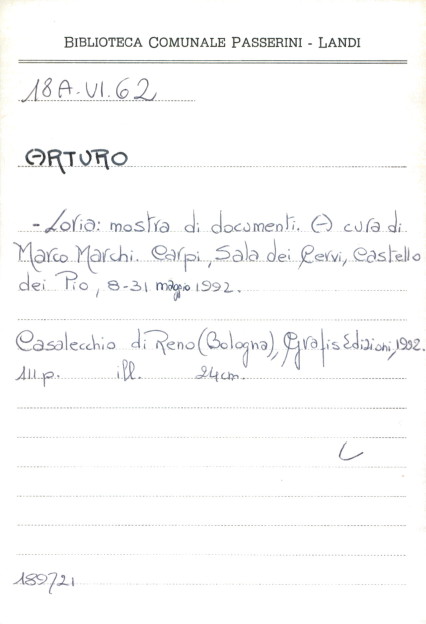 BIBLIOTECA COMUNALE PASSERINI - LANDI
18A.VI.62
ARTURO
- Loria: mostra di documenti. A cura di
Marco Marchi. Carpi, Sala dei Cervi, Castello
dei Pio, 8-31 maggio 1992.
Casalecchio di Reno (Bologna), Grafis Edizioni, 1992.
111 p. ill. 24 cm.
L
189721